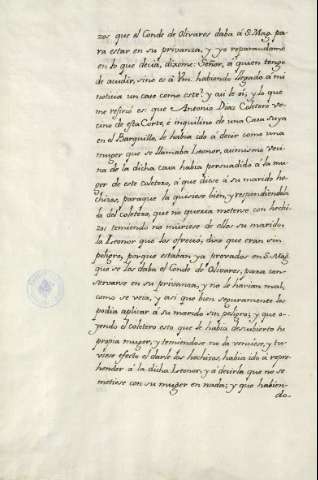 zos que el Conde de Olivares daba á S. Mag. pa
ra estar en su privanza, y yo reparandome
en lo que decia, dixome: Señor, á quien tengo
de acudir, sino es á Vm. habiendo llegado á mi
noticia un caso como este? y asi le oí, y lo que
me refirió es: que Antonio Diaz Coletero ve-
cino de esta Corte, é inquilino de una Casa suya
en el Barquillo, le habia ido á decir como una
muger que se llamaba Leonor, asimismo veci
na de la dicha casa habia persuadido á la mu
ger de este coletero, á que diese á su marido he
chizos, paraque la quisiese bien, y respondiendola
la del coletero, que no queria meterse con hechi
zos temiendo no muriese de ellos su marido,
la Leonor que los ofreció, dixo que eran sin
peligro, porque estaban ya provados en S. Mag.
que se los daba el Conde de Olivares, para con-
servarse en su privanza, y no le harian mal,
como se veía, y asi que bien seguramente los
podia aplicar á su marido sin peligro; y que o-
yendo el coletero esto que le habia descubierto su
propia muger, y temiendose no la venciese, y tu-
viese efecto el darle los hechizos, habia ido á repre-
hender á la dicha Leonor, y á decirla que no se
metiese con su muger en nada; y que habien-
do-